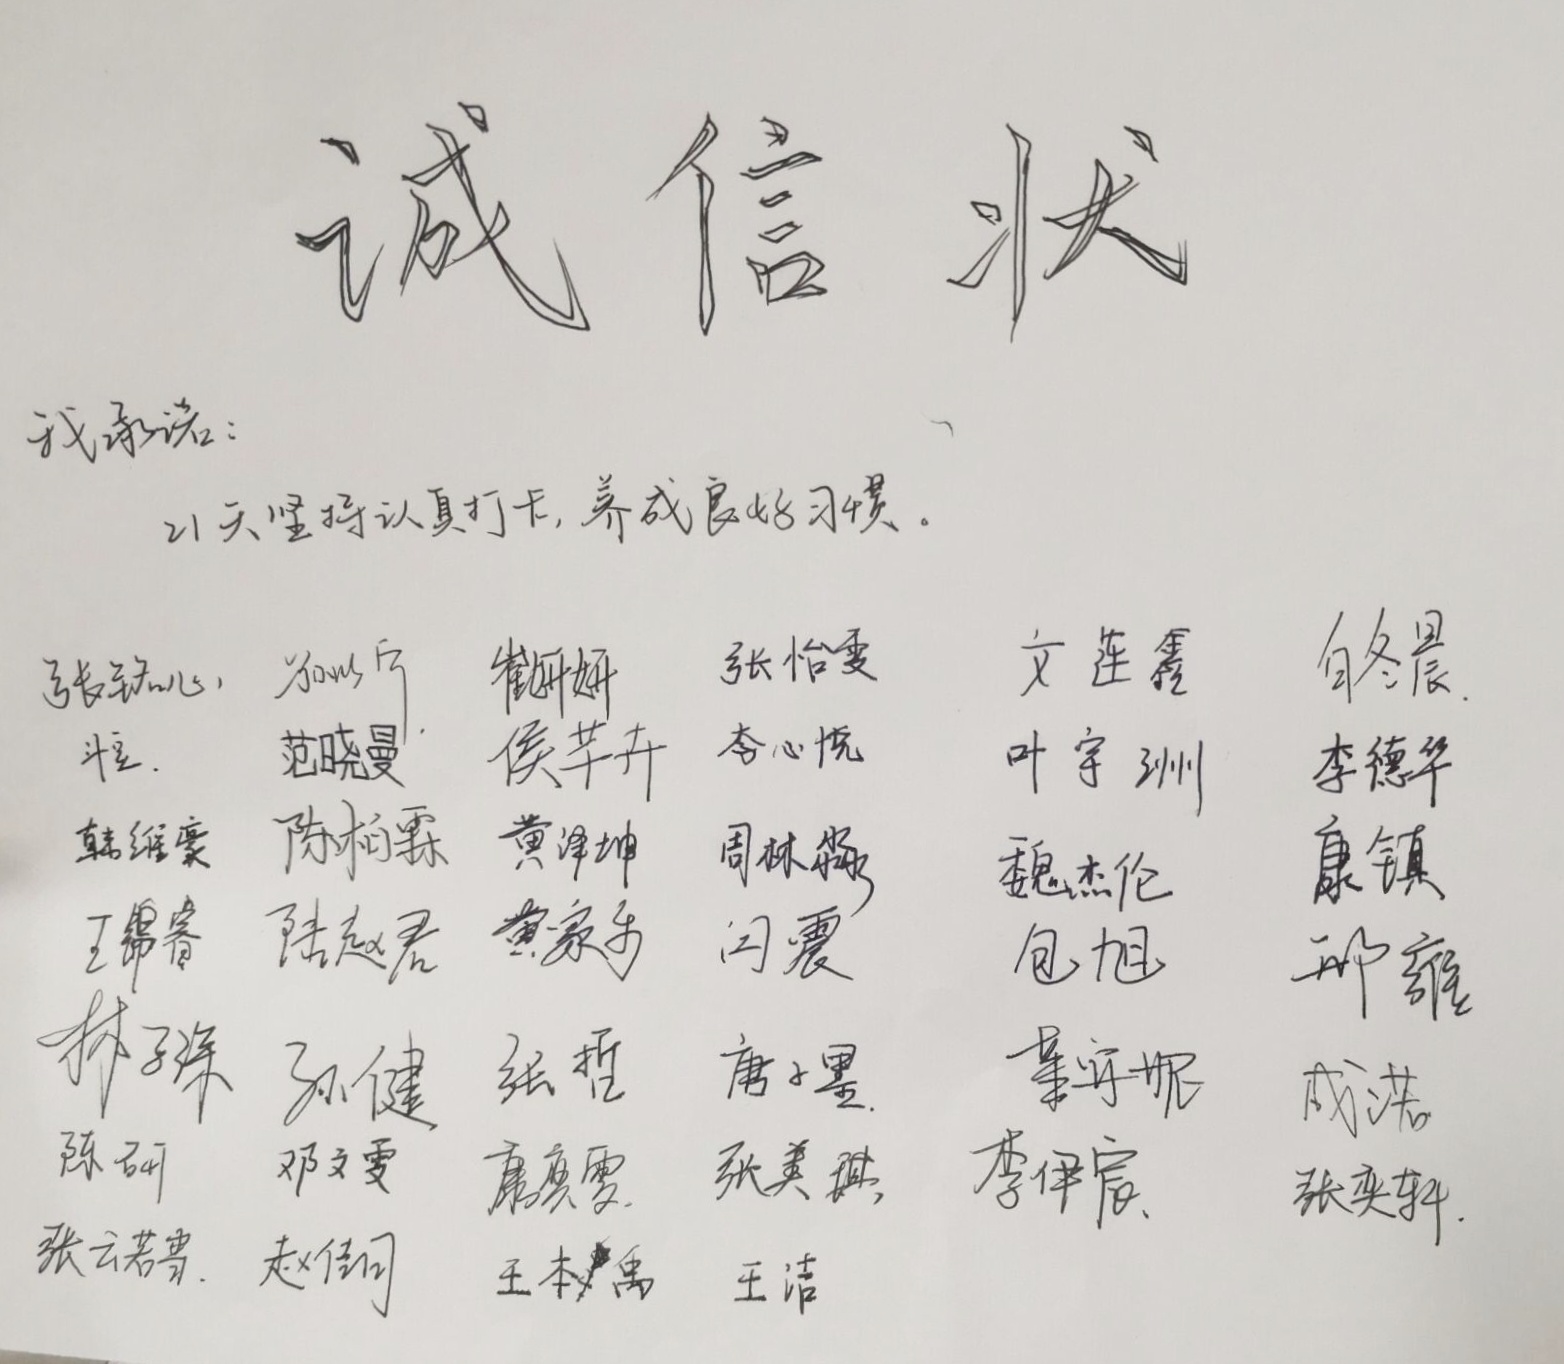 诚信状
我承诺:
21天坚持认真打卡,养成良好习惯。
张铭心 崔妍妍 张怡雯 文莲鑫 自冬晨
范晓曼 侯芊卉 李心悦 叶宇洲 李德华
韩维豪 陈柏霖 黄泽坤 周林淼 魏杰伦 康镇
王锡睿 陆赵君 黄家乐 闪震 包旭 邢雍
林子琛 孙健 张哲 唐子墨 叶守妮 成诺
陈研 邓文雯 康奠雯 张美琪 李伊宸 张奕轩
张云若雪 赵佳同 王本禹 王洁